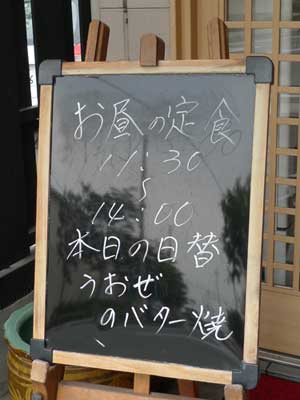 お昼の定食
11:30
〜
14:00
本日の日替
うおぜ
のバター焼